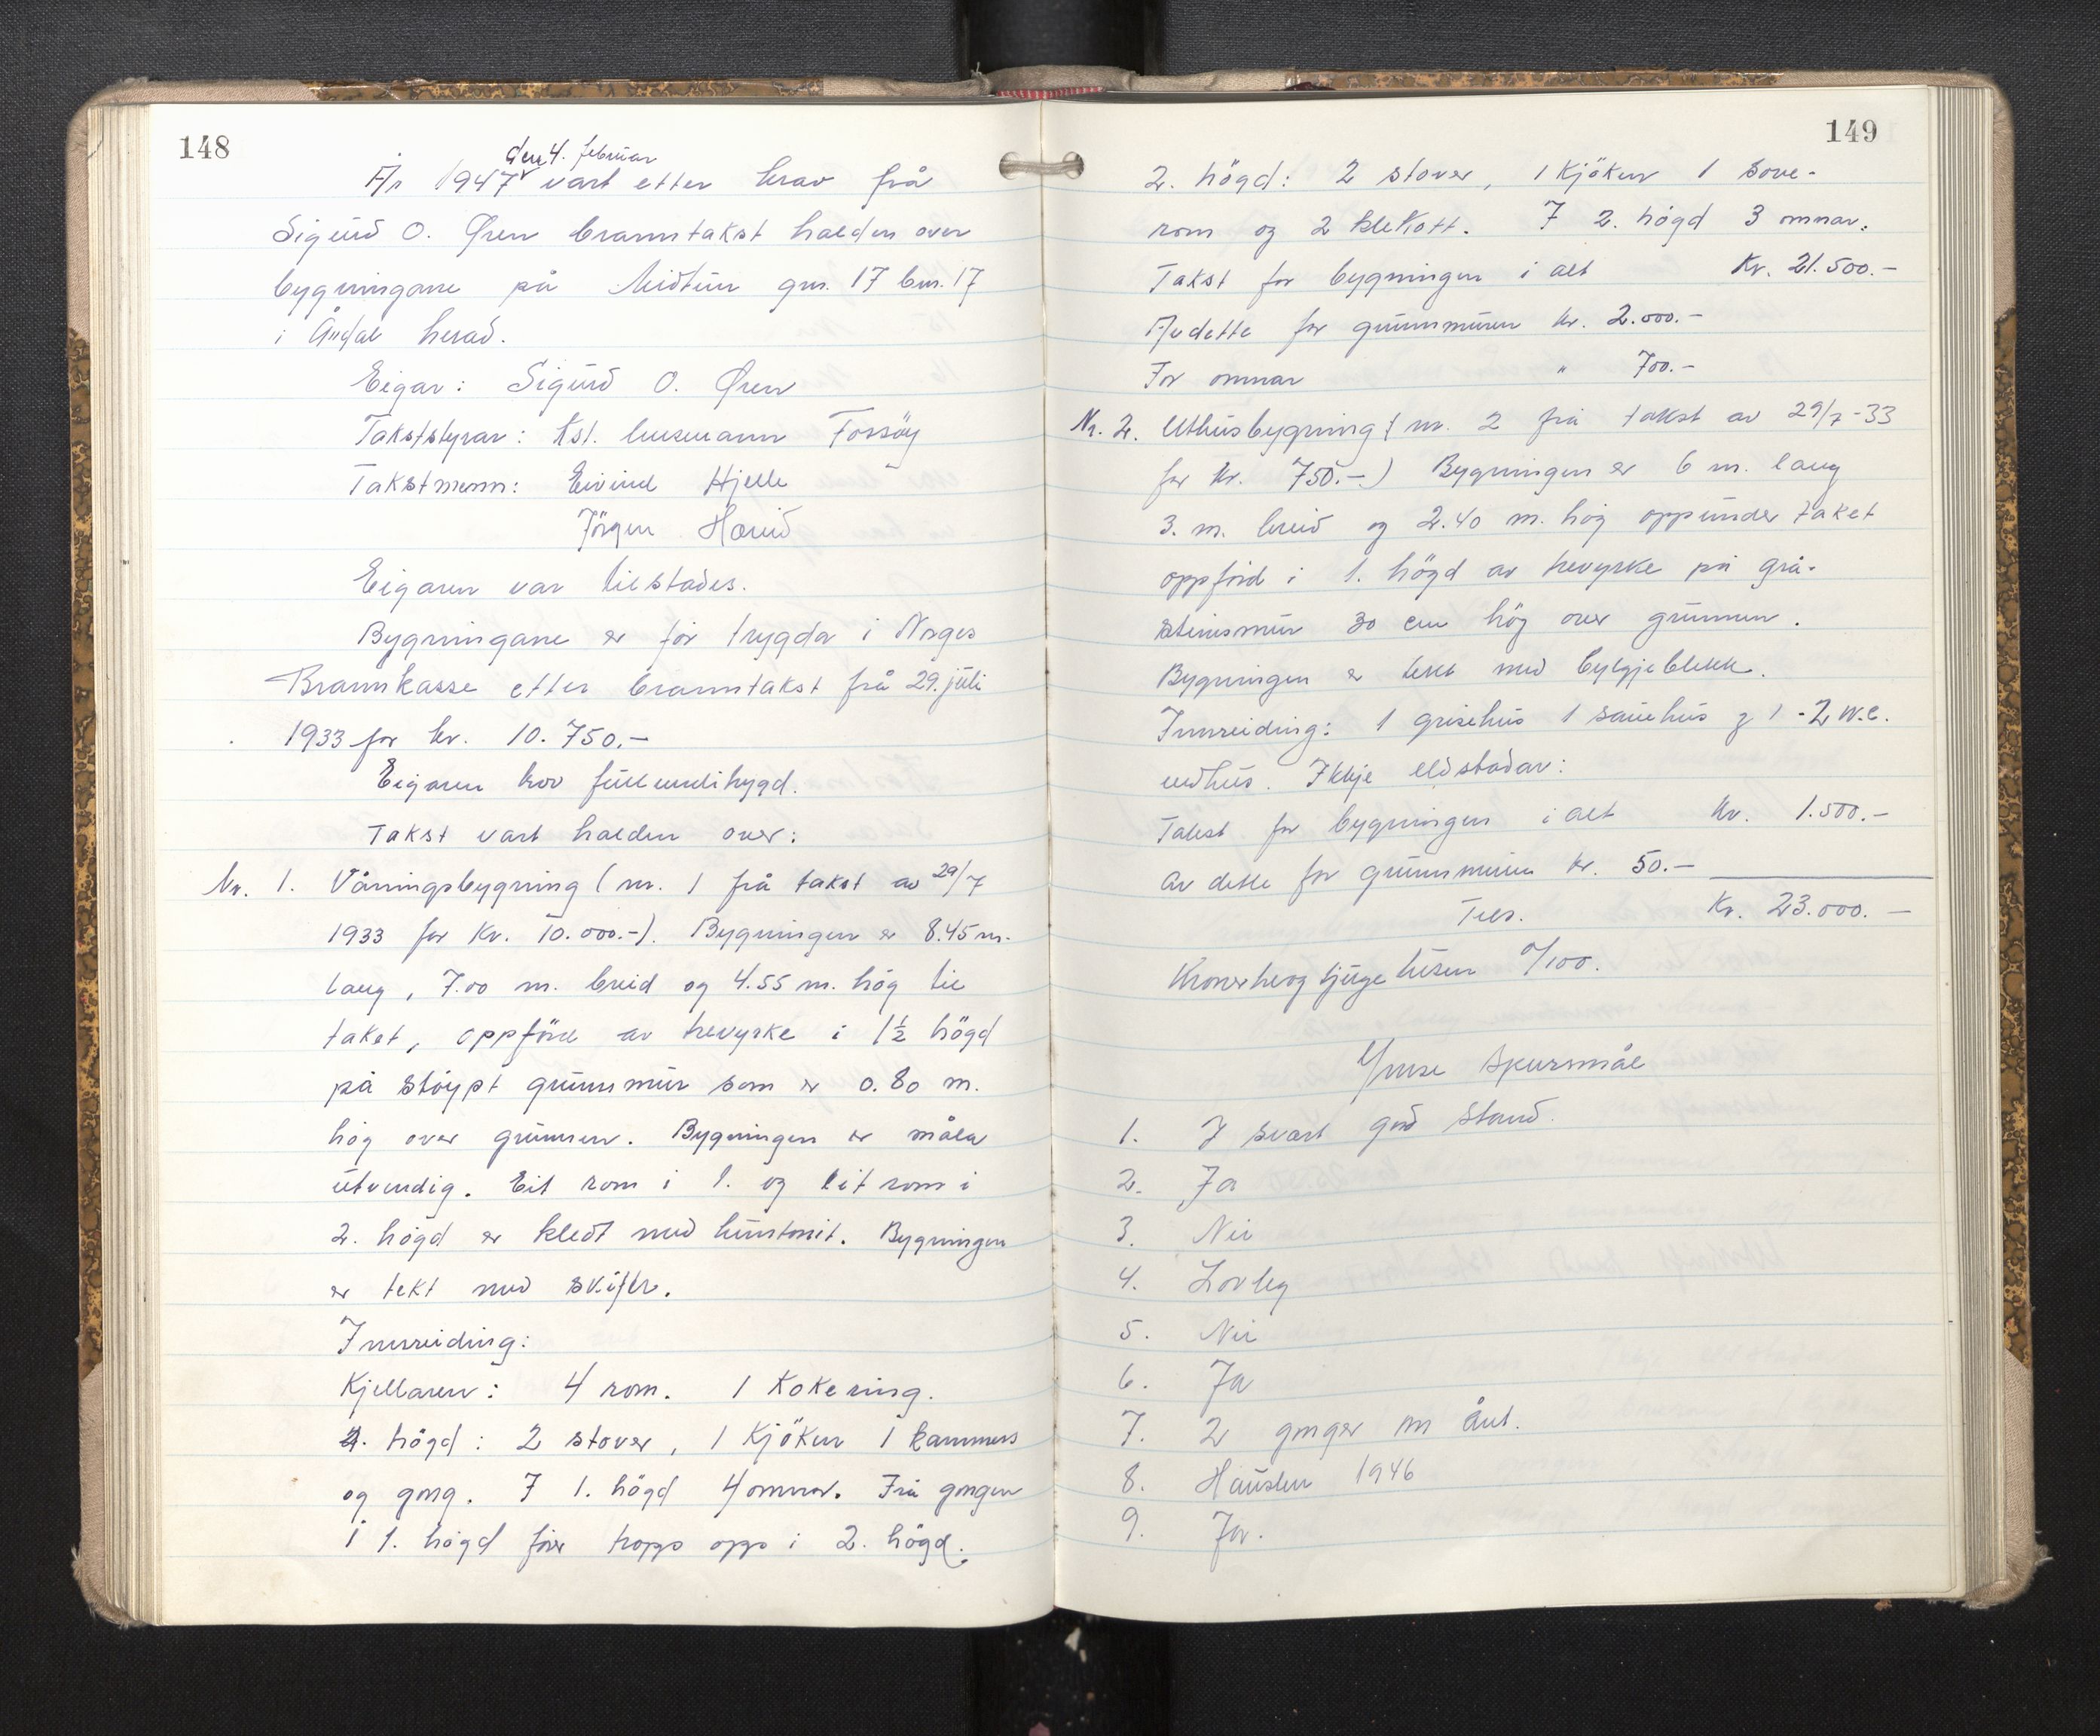 148
År 1947 den 4. februar vart etter krav frå
Sigurd O. Øren branntakst halden over
bygningane på Midtun gnr. 17 bnr. 17
i herad.
Eigar: Sigurd O. Øren
Takststyrar: Kst. lensmann Forsöy
Takstmenn: Eivind Hjelle
Jörgen
Eigaren var tilstades.
Bygningane er för trygda i Norges
Brannkasse etter branntakst frå 29. juli
1933 for kr. 10.750.-
Eigaren krov fullverditrygd.
Takst vart halden over:
Nr. 1. Våningsbygning (nr. 1 frå takst av 29/7
1933 for Kr. 10.000.-). Bygningen er 8.45 m.
lang, 7.00 m. breid og 4.55 m. hög til
taket, oppförd av trevyrke i 1½ högd
på stöypt grunnmur som er 0.80 m.
hög over grunnen. Bygningen er måla
utvendig. Eit rom i 1. og eit rom i
2. högd er kledt med huntonit. Bygningen
er tekt med skifer.
Innreiding:
Kjellaren: 4 rom. 1 Kokering.
1. högd: 2 stover, 1 Kjöken 1 kammers
og gong. I 1. högd 4 omnar. Frå gongen
i 1. högd förer tropp opp i 2. högd.
149
2. högd: 2 stover, 1 Kjöken 1 sove-
rom og 2 klekott. I 2. högd 3 omnar.
Takst for bygningen i alt Kr. 21.500.-
Av dette for grunnmuren kr. 2.000.-
For omnar " 700.-
Nr. 2. Uthusbygning (nr. 2 frå takst av 29/7-33
for kr. 750.-) Bygningen er 6 m. lang
3. m. breid og 2.40 m. hög oppunder taket
oppförd i 1. högd av trevyrke på grå-
steinsmur 30 cm hög over grunnen.
Bygningen er tekt med bylgjeblekk.
Innreiding: 1 grisehus 1 sauehus og 1 - 2 W.C.
vedhus. Ikkje eldstadar:
Takst for bygningen i alt Kr. 1.500.-
Av dette for grunnmuren kr. 50.-
Tils. Kr. 23.000.-
Kronertreogtjugetusen 0/100.
Ymse spursmål
1. I svært god stand.
2. Ja
3. Nei
4. Lovleg
5. Nei
6. Ja
7. 2 gonger om året.
8. Hausten 1946
9. Ja.